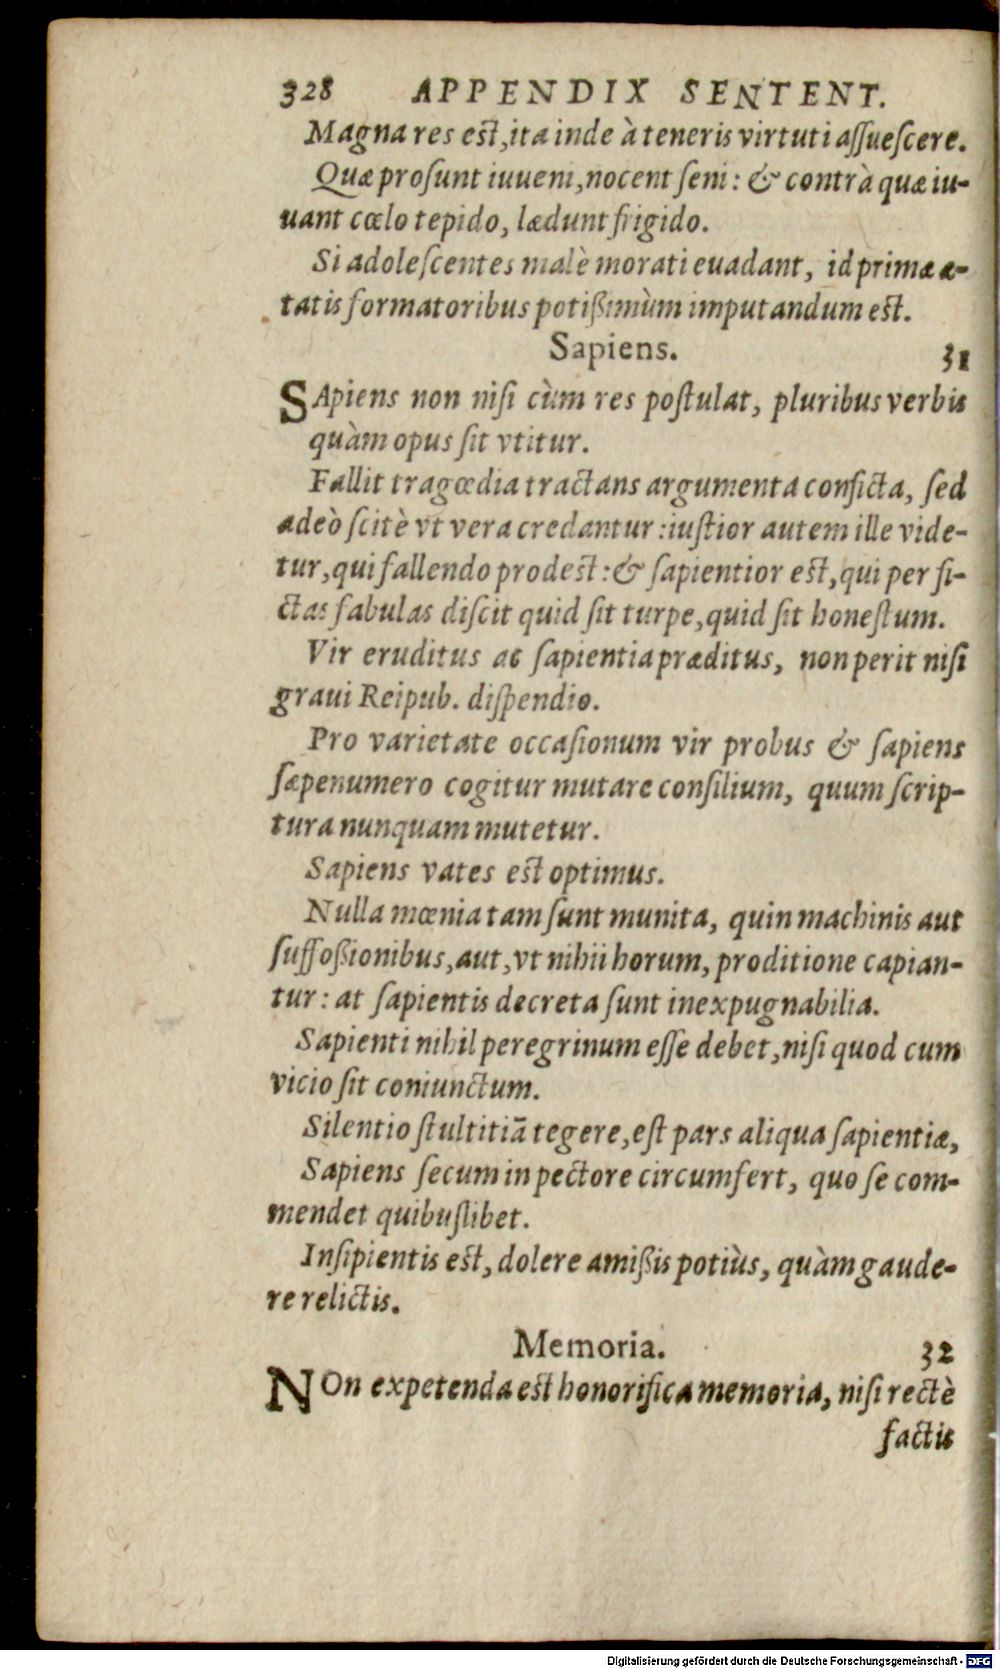 328 APPENDIX SENTENT.
Magna res est, ita inde à teneris virtuti assuescere.
Quæ prosunt iuueni, nocent seni: & contrà quæ iu-
uant cœlo tepido, lædunt frigido.
Si adolescentes malè morati euadant, id primæ æ-
tatis formatoribus potißimùm imputandum est.
Sapiens. 31
SApiens non nisi cùm res postulat, pluribus verbis
quàm opus sit vtitur.
Fallit tragœdia tractans argumenta conficta, sed
adeò scitè vt vera credantur: iustior autem ille vide-
tur, qui fallendo prodest: & sapientior est, qui per fi-
ctas fabulas discit quid sit turpe, quid sit honestum.
Vir eruditus ac sapientia præditus, non perit nisi
graui Reipub. dispendio.
Pro varietate occasionum vir probus & sapiens
sæpenumero cogitur mutare consilium, quum scrip-
tura nunquam mutetur.
Sapiens vates est optimus.
Nulla mœnia tam sunt munita, quin machinis aut
suffoßionibus, aut, vt nihii horum, proditione capian-
tur: at sapientis decreta sunt inexpugnabilia.
Sapienti nihil peregrinum esse debet, nisi quod cum
vicio sit coniunctum.
Silentio stultitiã tegere, est pars aliqua sapientiæ,
Sapiens secum in pectore circumfert, quo se com-
mendet quibuslibet.
Insipientis est, dolere amißis potiùs, quàm gaude-
re relictis.
Memoria. 32
NOn expetenda est honorifica memoria, nisi rectè
factis
Digitalisierung gefördert durch die Deutsche Forschungsgemeinschaft - DFG